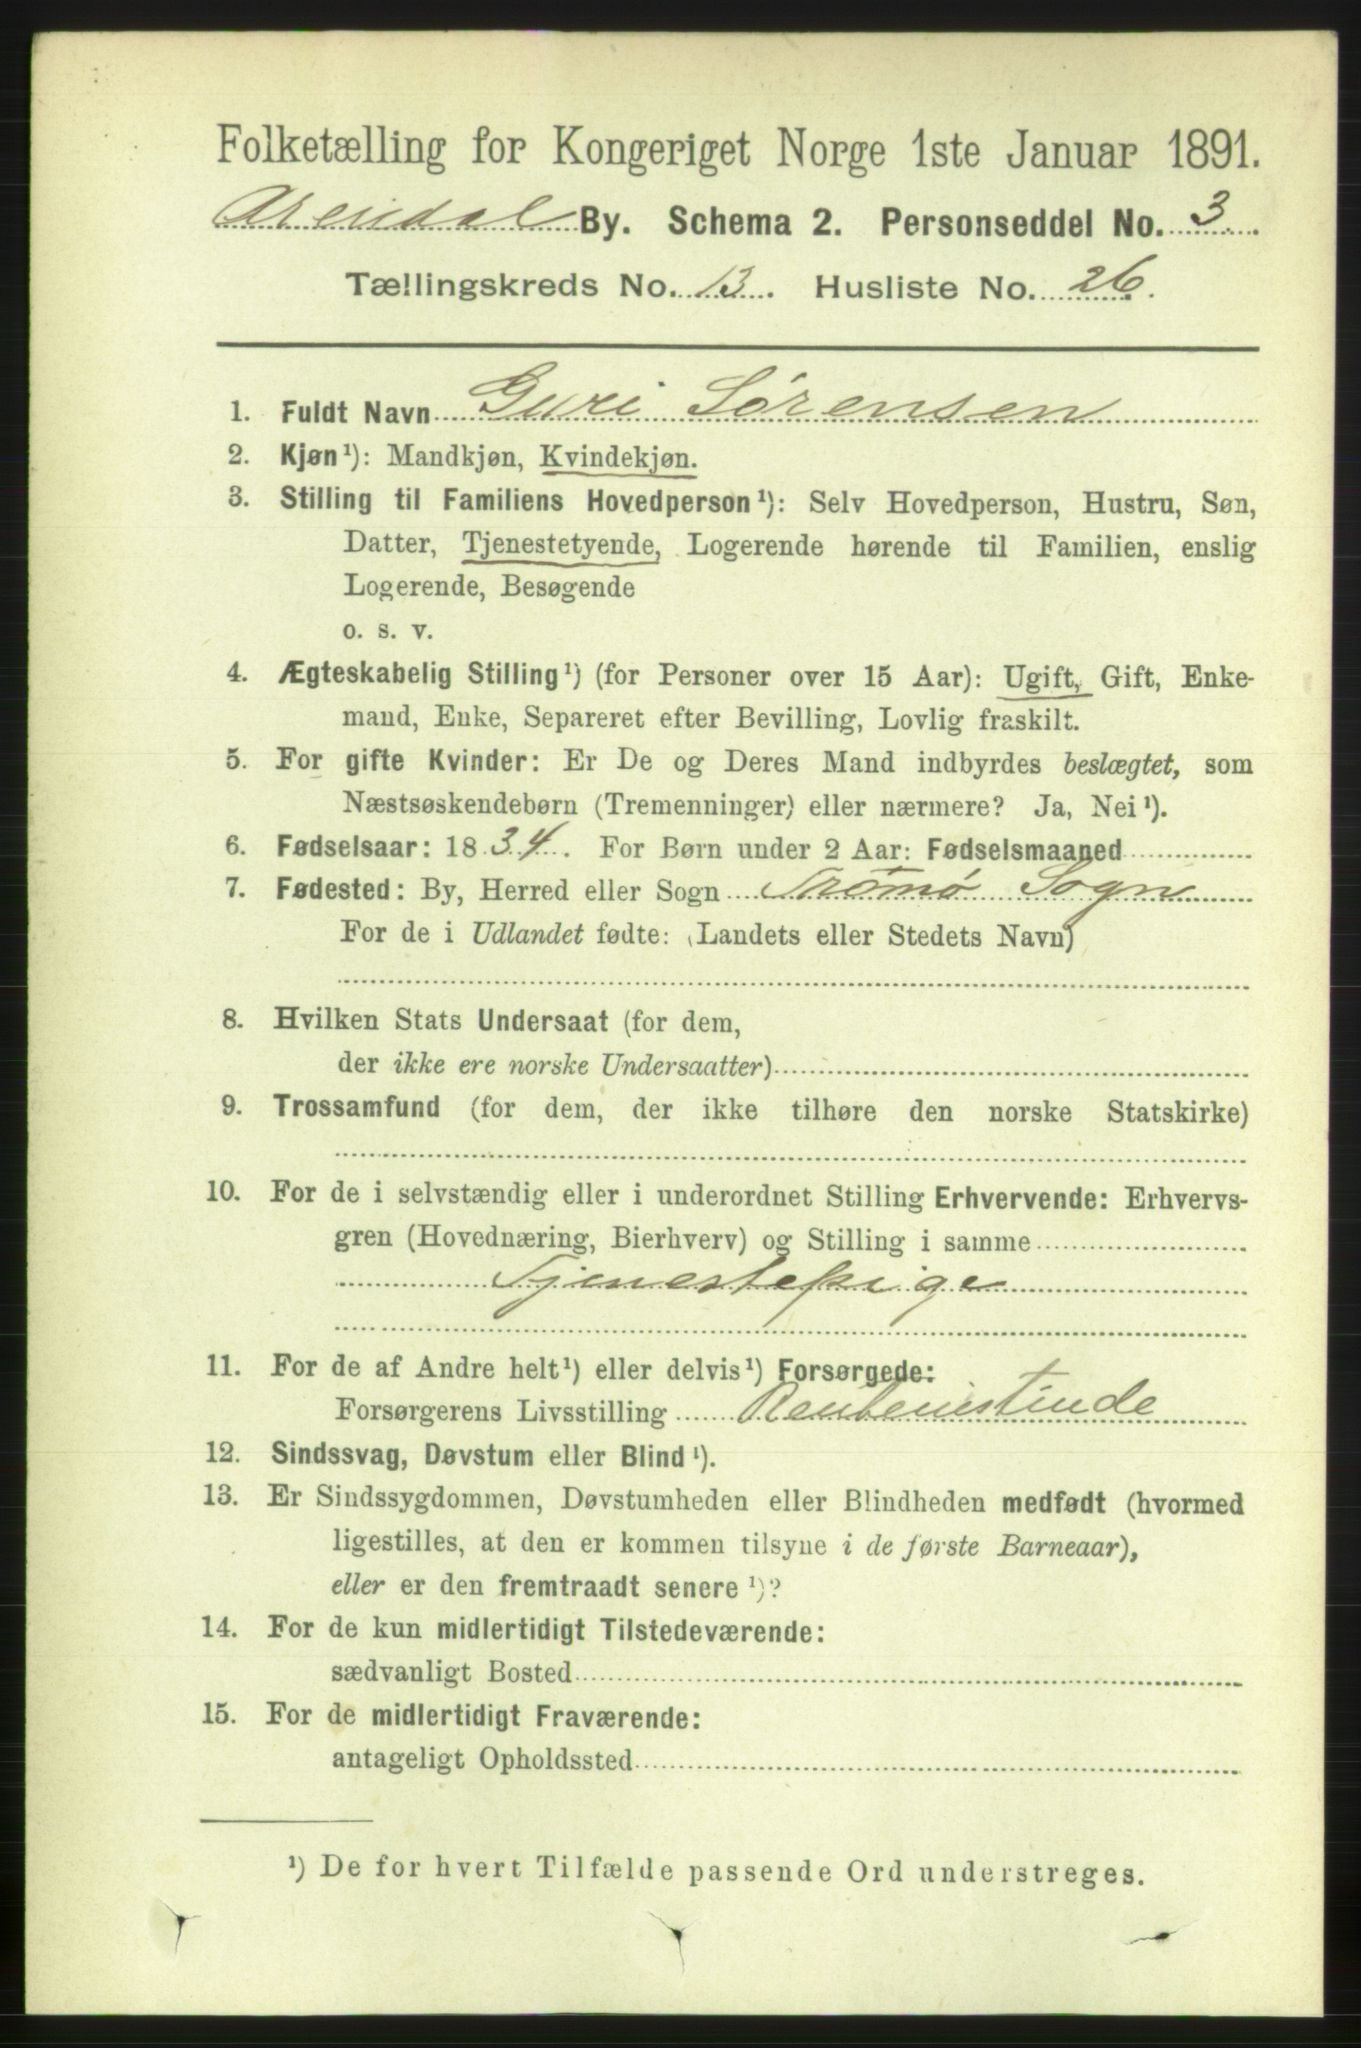 Folketælling for Kongeriget Norge 1ste Januar 1891.
Arendal By. Schema 2. Personseddel No. 3.
Tællingskreds No. 13. Husliste No. 26.
1. Fuldt Navn Guri Sørensen
2. Kjøn¹): Mandkjøn, Kvindekjøn.
3. Stilling til Familiens Hovedperson¹): Selv Hovedperson, Hustru, Søn,
Datter, Tjenestetyende, Logerende hørende til Familien, enslig
Logerende, Besøgende
o. s. v.
4. Ægteskabelig Stilling¹) (for Personer over 15 Aar): Ugift, Gift, Enke-
mand, Enke, Separeret efter Bevilling, Lovlig fraskilt.
5. For gifte Kvinder: Er De og Deres Mand indbyrdes beslægtet, som
Næstsøskendebørn (Tremenninger) eller nærmere? Ja, Nei¹).
6. Fødselsaar: 1834. For Børn under 2 Aar: Fødselsmaaned
7. Fødested: By, Herred eller Sogn Trømø Sogn
For de i Udlandet fødte: (Landets eller Stedets Navn)
8. Hvilken Stats Undersaat (for dem,
der ikke ere norske Undersaatter)
9. Trossamfund (for dem, der ikke tilhøre den norske Statskirke)
10. For de i selvstændig eller i underordnet Stilling Erhvervende: Erhvervs-
gren (Hovednæring, Bierhverv) og Stilling i samme
Tjenestepige
11. For de af Andre helt¹) eller delvis¹) Forsørgede:
Forsørgerens Livsstilling
12. Sindssvag, Døvstum eller Blind¹).
13. Er Sindssygdommen, Døvstumheden eller Blindheden medfødt (hvormed
ligestilles, at den er kommen tilsyne i de første Barneaar),
eller er den fremtraadt senere¹)?
14. For de kun midlertidigt Tilstedeværende:
sædvanligt Bosted
15. For de midlertidigt Fraværende:
antageligt Opholdssted
¹) De for hvert Tilfælde passende Ord understreges.